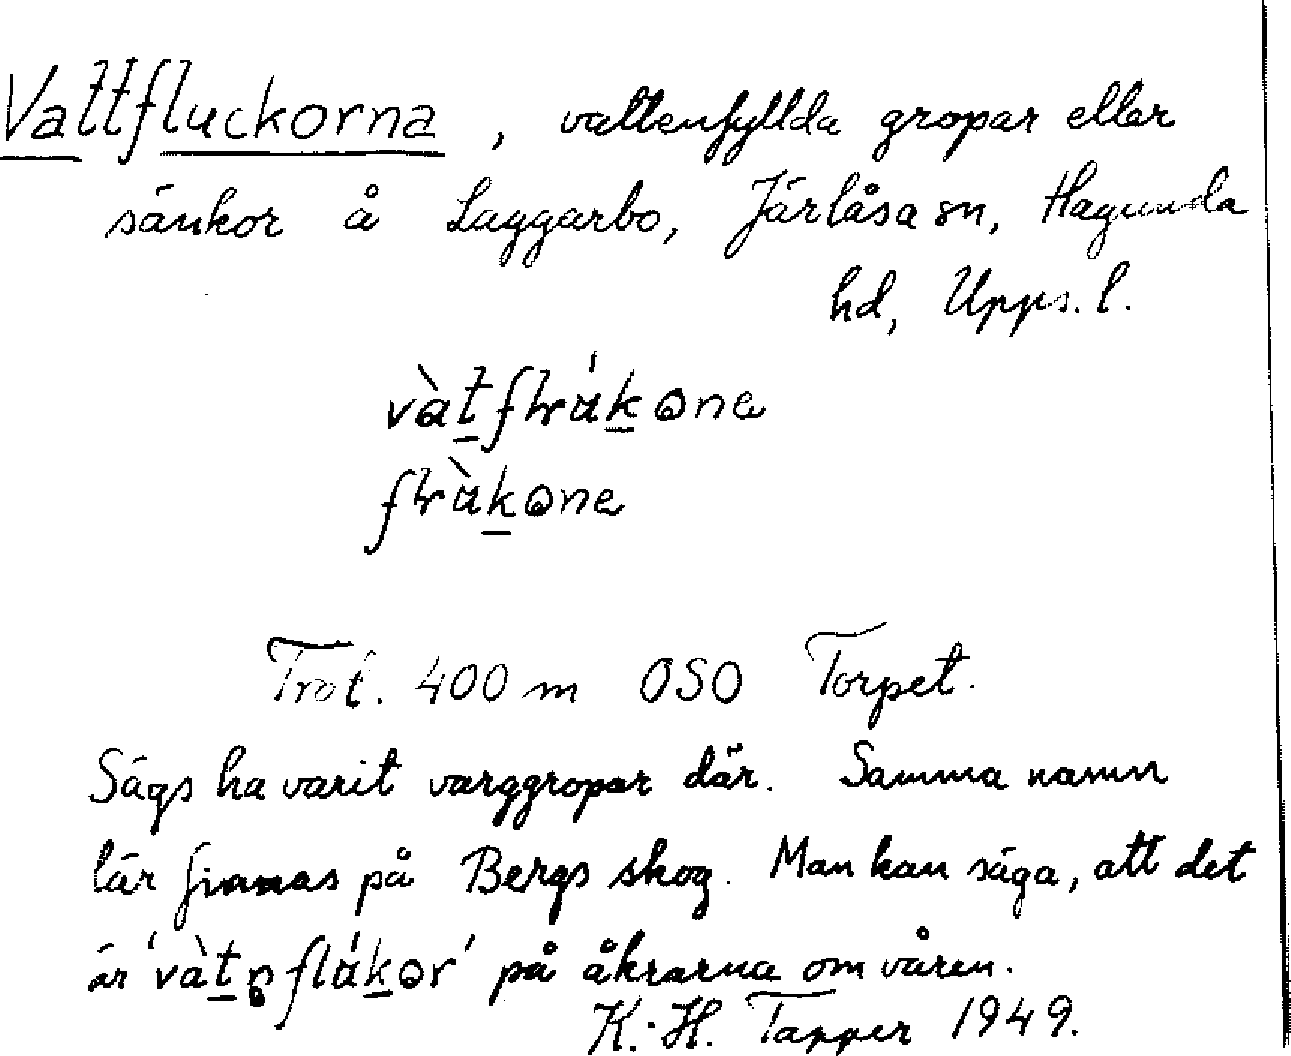 Vattfluckorna, vattenfyllda gropar eller
sänkor å Laggarbo, Järlåsa sn, Hagunda
hd, Upps. l.
Trol. 400 m OSO Torpet.
Sägs ha varit varggropar där. Samma namn
lär finnas på Bergs skog. Man kan säga, att det
är på åkrarna om våren.
K.-H. Tapper 1949.